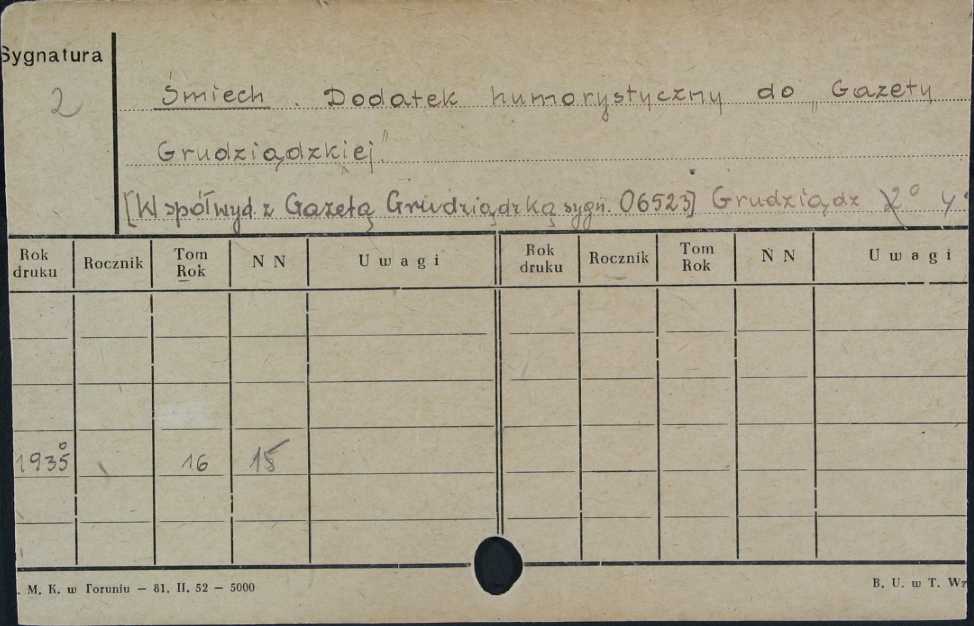 Sygnatura
2
Śmiech. Dodatek humorystyczny do „Gazety
Grudziądzkiej"
[Współwyd z Gazetą Grudziądzką sygn. 06523] Grudziądz 2° 4°
Rok druku Rocznik Tom Rok N N Uwagi Rok druku Rocznik Tom Rok N N Uwagi
1935 16 15
. M. K. w Toruniu — 81. II. 52 — 5000
B. U. w T. Wz